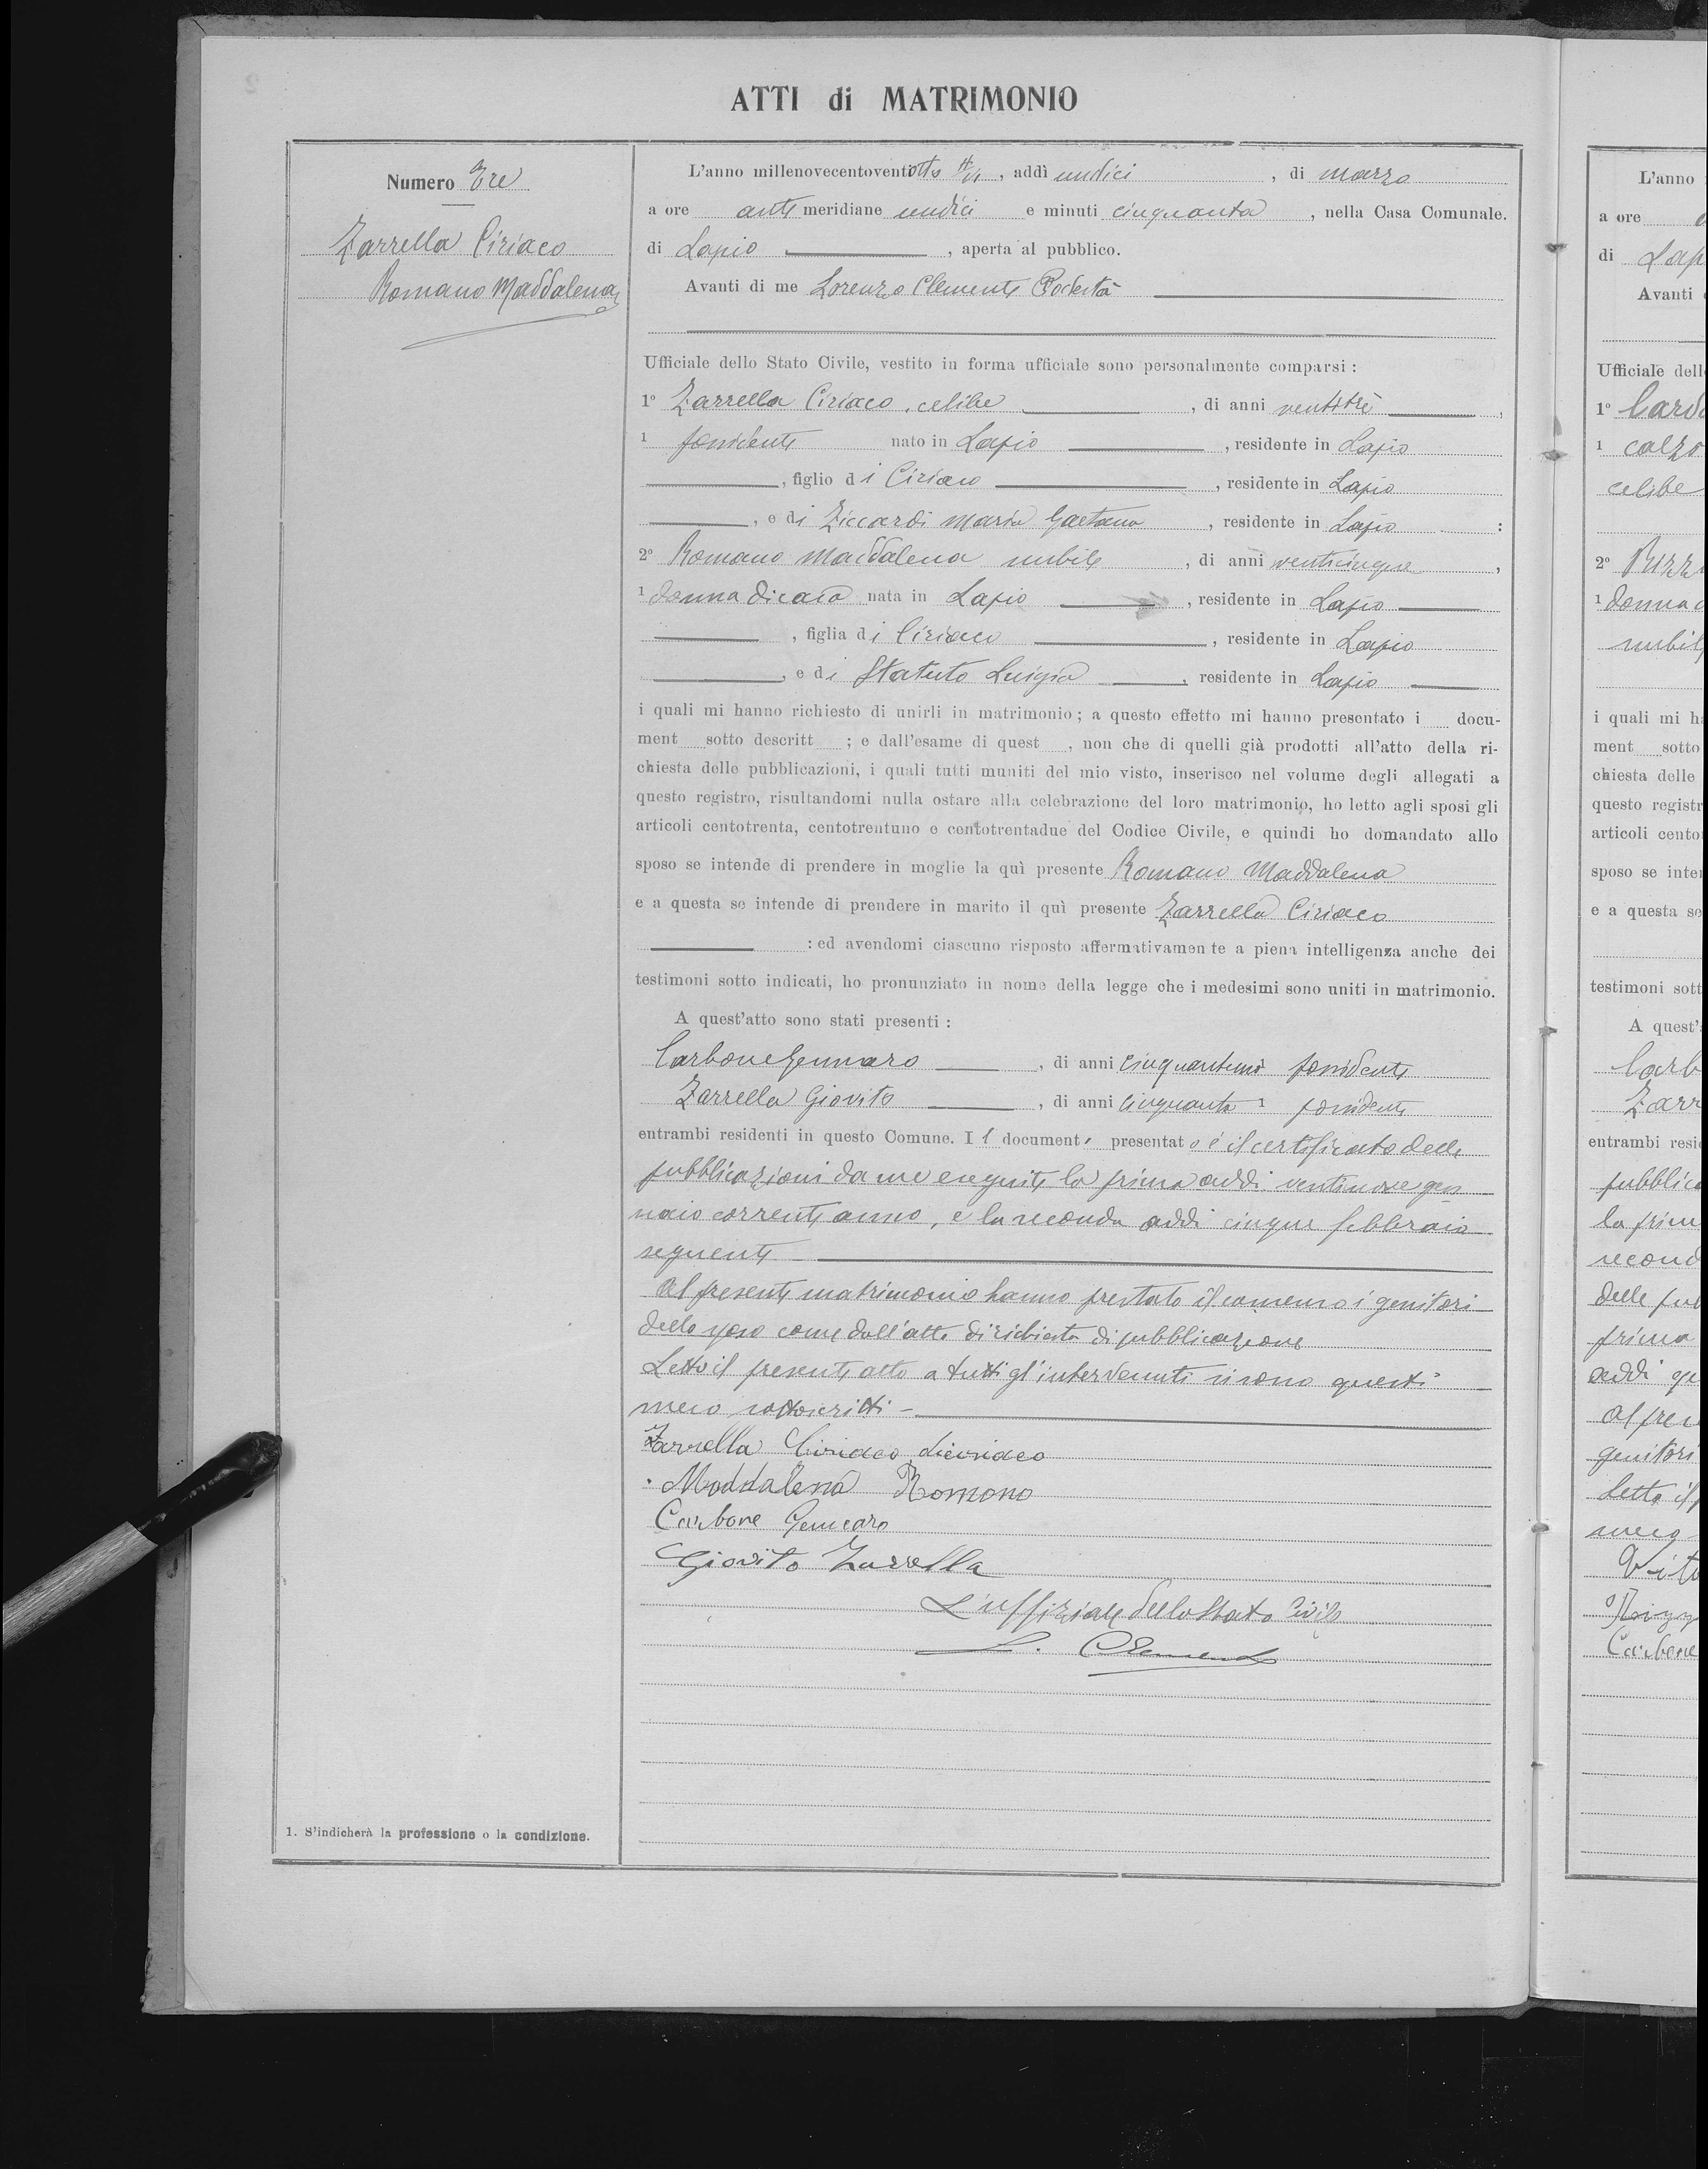 ATTI di MATRIMONIO
Numero Tre
Zarrella Ciriaco
Romano Maddalena
1. S'indicherà la professione o la condizione.
L'anno millenovecentoventotto, addì undici, di marzo
a ore anti meridiane undici e minuti cinquanta, nella Casa Comunale.
di Lapio, aperta al pubblico.
Avanti di me Lorenzo Clemente Podestà
Ufficiale dello Stato Civile, vestito in forma ufficiale sono personalmente comparsi:
1° Zarrella Ciriaco, celibe, di anni ventitrè,
1 possidente nato in Lapio, residente in Lapio
, figlio di Ciriaco, residente in Lapio
, e di Ziccardi Maria Gaetana, residente in Lapio :
2° Romano Maddalena nubile, di anni venticinque,
1 donna di casa nata in Lapio, residente in Lapio
, figlia di Ciriaco, residente in Lapio
, e di Statuto Luigia, residente in Lapio
i quali mi hanno richiesto di unirli in matrimonio; a questo effetto mi hanno presentato i docu-
ment sotto descritt ; e dall'esame di quest , non che di quelli già prodotti all'atto della ri-
chiesta delle pubblicazioni, i quali tutti muniti del mio visto, inserisco nel volume degli allegati a
questo registro, risultandomi nulla ostare alla celebrazione del loro matrimonio, ho letto agli sposi gli
articoli centotrenta, centotrentuno e centotrentadue del Codice Civile, e quindi ho domandato allo
sposo se intende di prendere in moglie la quì presente Romano Maddalena
e a questa se intende di prendere in marito il quì presente Zarrella Ciriaco
: ed avendomi ciascuno risposto affermativamente a piena intelligenza anche dei
testimoni sotto indicati, ho pronunziato in nome della legge che i medesimi sono uniti in matrimonio.
A quest'atto sono stati presenti:
Carbone Gennaro, di anni possidente
Zarrella Giovito, di anni cinquanta 1 possidente
entrambi residenti in questo Comune. Il document presentato è il certificato delle
pubblicazioni da me eseguite la prima addì ventinove gen
naio corrente anno, e la seconda addì cinque febbraio
seguente
Al presente matrimonio hanno prestato il consenso i genitori
dello sposo come dall'atto di richiesta di pubblicazione
Letto il presente atto a tutti gl'intervenuti si sono questi
meco sottoscritti -
Zarrella Ciriaco di Ciriaco
Maddalena Romano
Carbone Gennaro
Giovito Zarrella
L'uffiziale dello Stato Civile
L. Clemente
L'anno
a ore
di Lap
Avanti
Ufficiale dell
1°
1 calzo
celibe
2°
1 donna
nubile
i quali mi h
ment sotto
chiesta delle
questo registr
articoli cento
sposo se inte
e a questa se
testimoni sott
A quest'
Carb
Zarr
entrambi resi
pubblica
la prim
second
delle pub
prima
addì
Al pres
genitori
Letto il
meco
Carbone